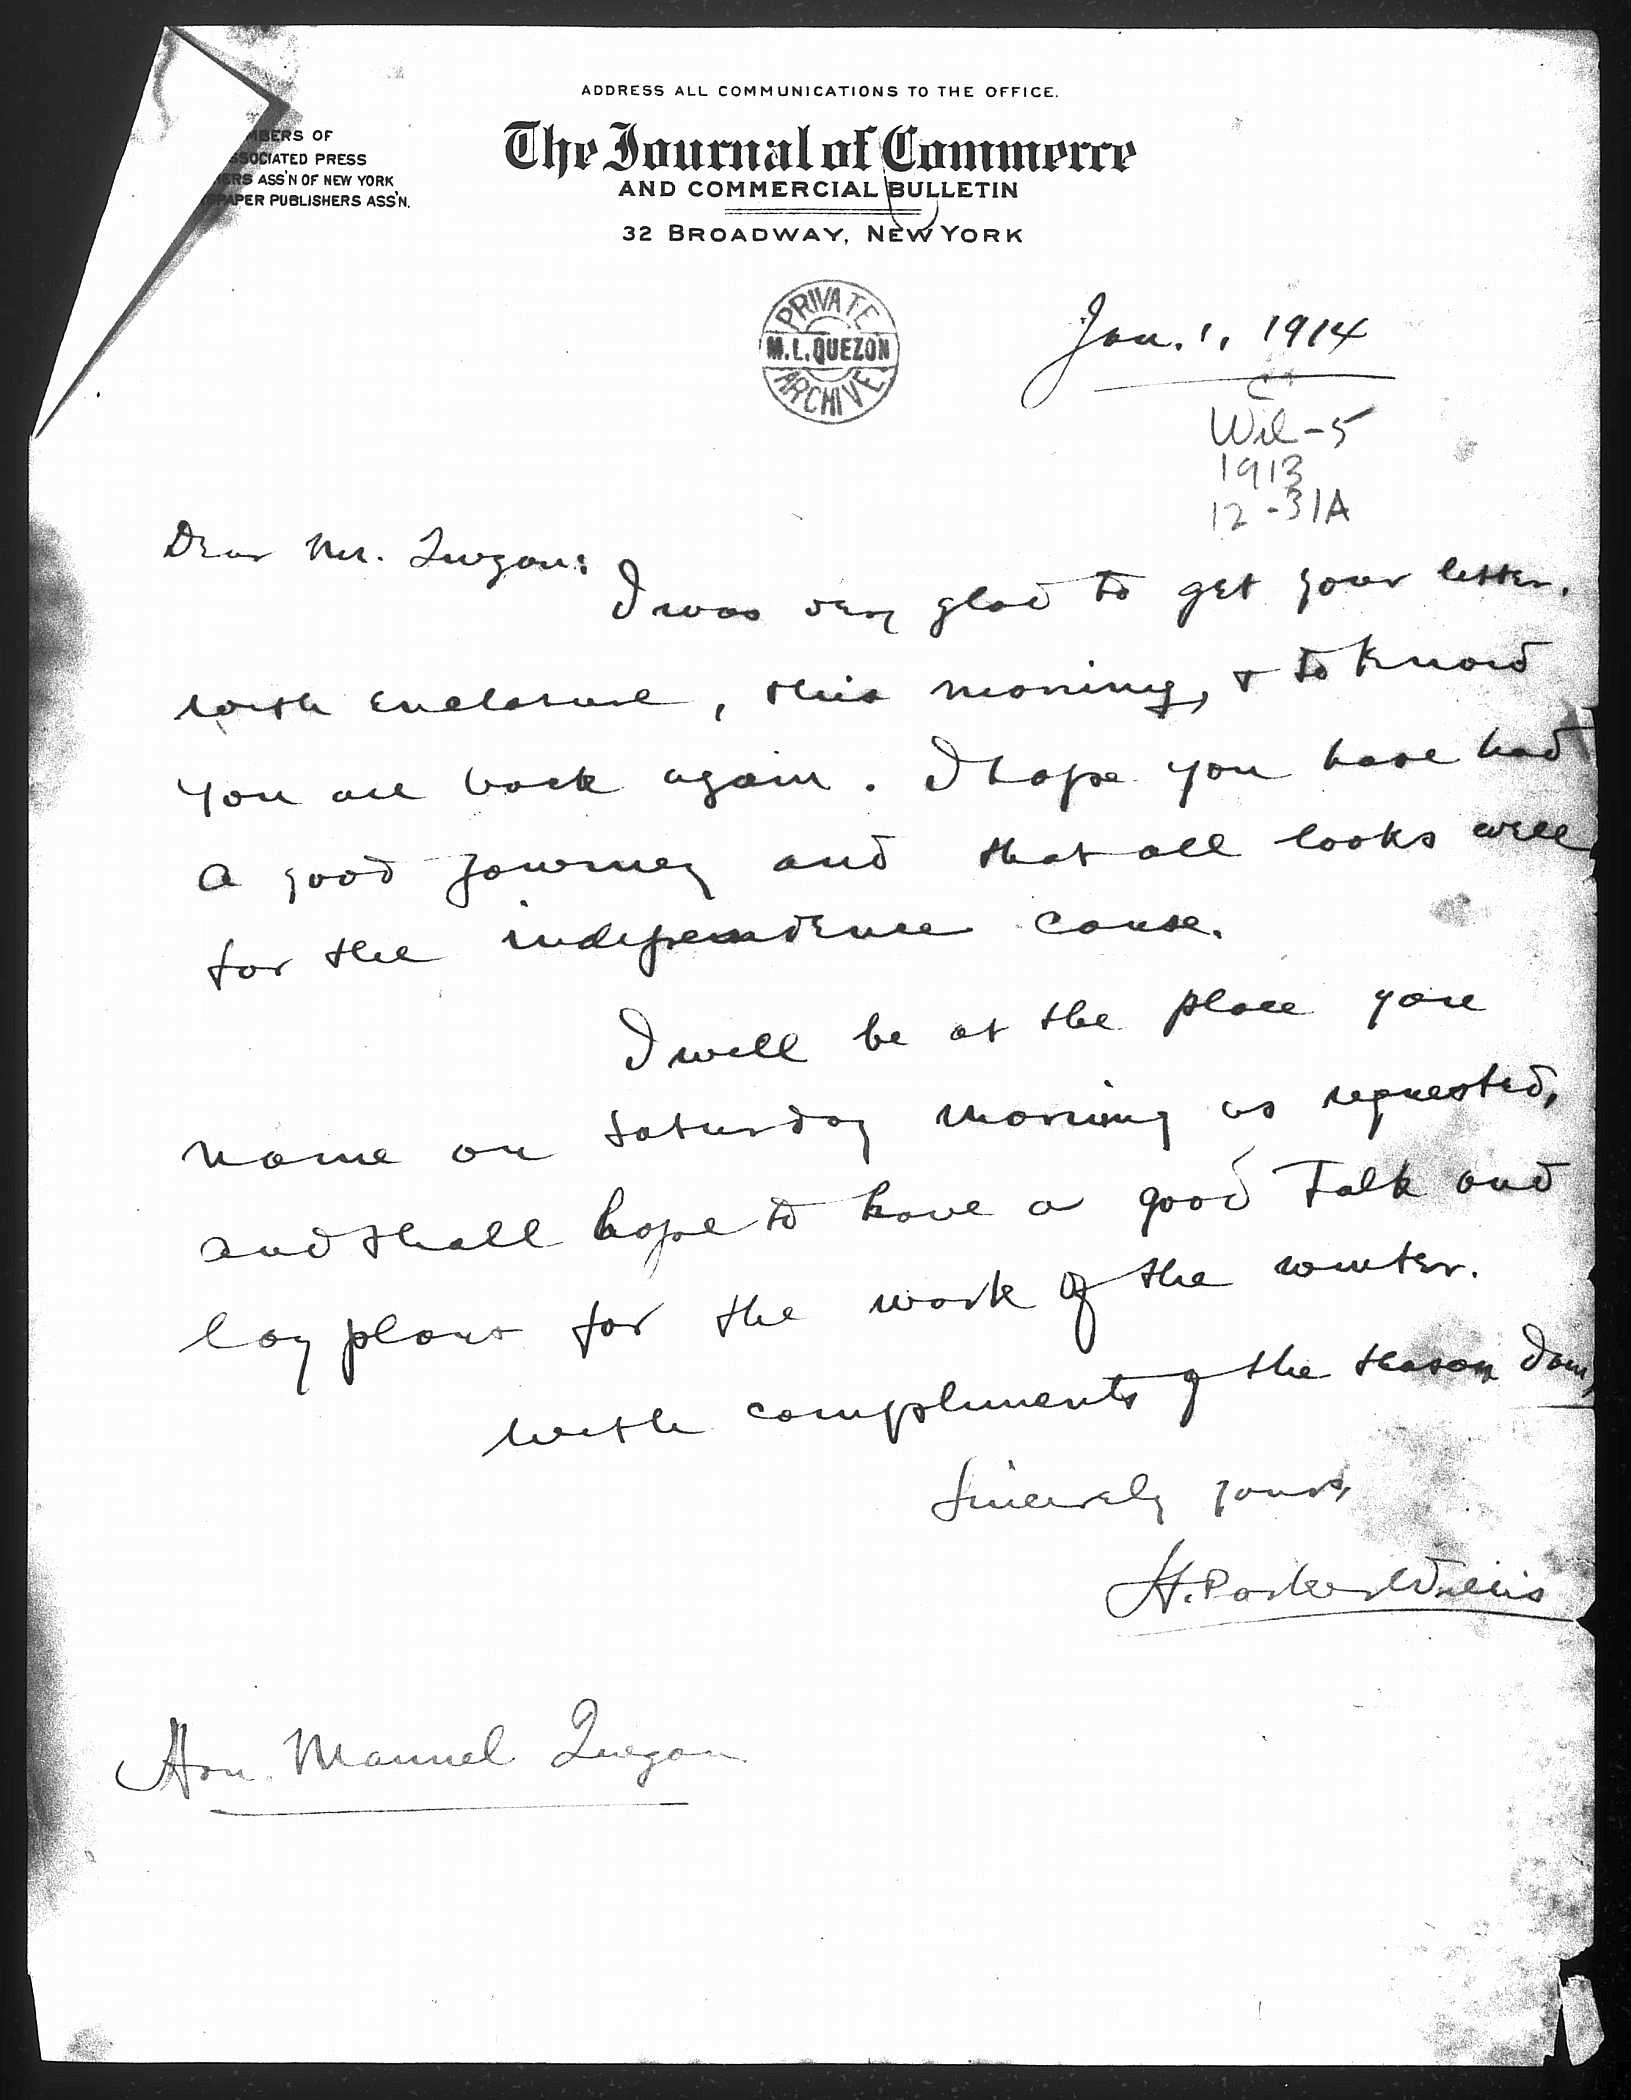 ADDRESS ALL COMMUNICATIONS TO THE OFFICE.
MBERS OF
SSOCIATED PRESS
ERS ASS'N OF NEW YORK
PAPER PUBLISHERS ASS'N.
The Journal of Commerce
AND COMMERCIAL BULLETIN
32 BROADWAY, NEW YORK
PRIVATE
M.L. QUEZON
ARCHIVE
Jan. 1, 1914
Wil-5
1913
12-31A
Dear Mr. Quezon:
I was very glad to get your letter,
with enclosure, this morning, & to know
you are back again. I hope you have had
a good journey and that all looks well
for the independence cause.
I will be at the place you
name on Saturday morning as requested,
and shall hope to have a good talk and
lay plans for the work of the winter.
With compliments of the season I am,
Sincerely yours,
H. Parker Willis
Hon. Manuel Quezon